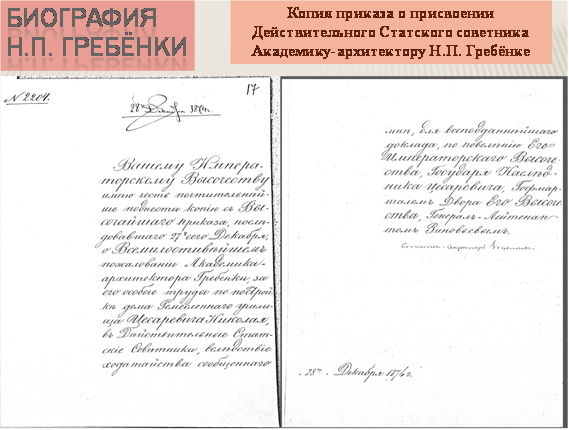 БИОГРАФИЯ
Н.П. ГРЕБЁНКИ
Копия приказа о присвоении
Действительного Статского советника
Академику-архитектору Н.П. Гребёнке
№ 2204.
17
28го Декабря 1874 г.
Вашему Импера-
торскому Высочеству
имею честь почтительнѣй-
ше поднести копію съ Вы-
сочайшаго приказа, послѣ-
довавшаго 27го сего Декабря,
о Всемилостивѣйшемъ
пожалованіи Академика-
архитектора Гребенки, за
его особые труды по построй-
кѣ дома Ремесленнаго учили-
ща Цесаревича Николая,
въ Дѣйствительные Стат-
скіе Совѣтники, вслѣдствіе
ходатайства сообщеннаго
мнѣ, для всеподданнѣйшаго
доклада, по повелѣнію Его
Императорскаго Высоче-
ства, Государя Наслѣд-
ника Цесаревича, Гофмар-
шаломъ Двора Его Высоче-
ства, Генералъ-Лейтенан-
томъ Зиновьевымъ.
28го Декабря 1874 г.